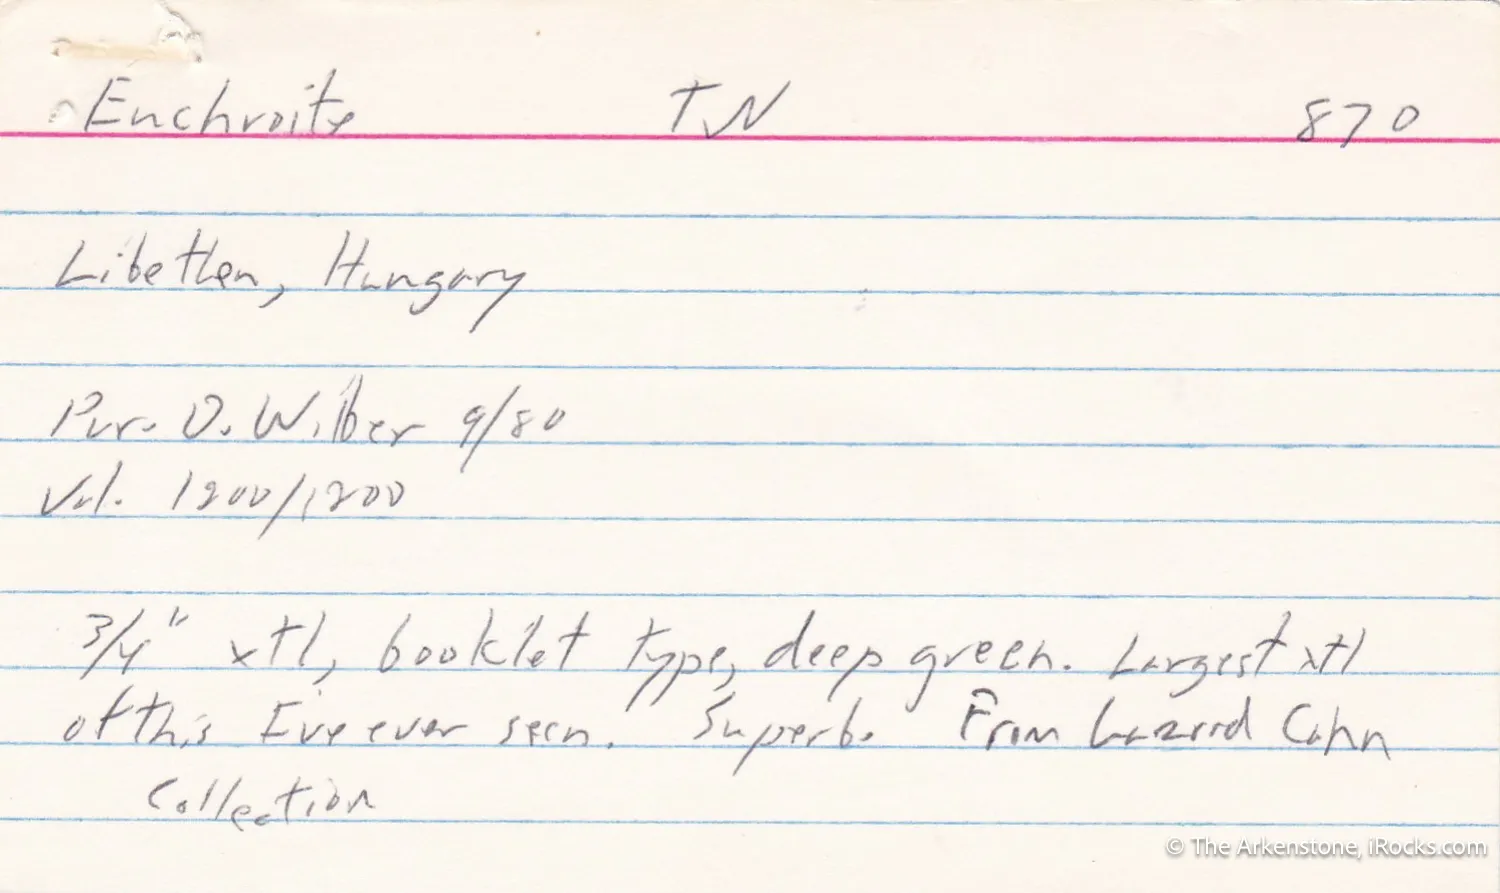 Enchroite TN 870
Libethen, Hungary
Pur. D. Wilber 9/80
Val. 1200/1200
3/4" xtl, booklet type, deep green. Largest xtl
of this I've ever seen. Superb. From Lazard Cahn
Collection
© The Arkenstone, iRocks.com